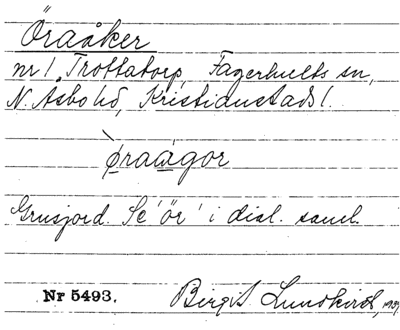 Öraåker
nr 1. Trottatorp, Fagerhults sn,
N. Åsbo hd, Kristianstads l.
ø̀raågor
Grusjord. Se 'ör' i dial. saml.
Nr 5493. Birgit Lundkvist, 1934